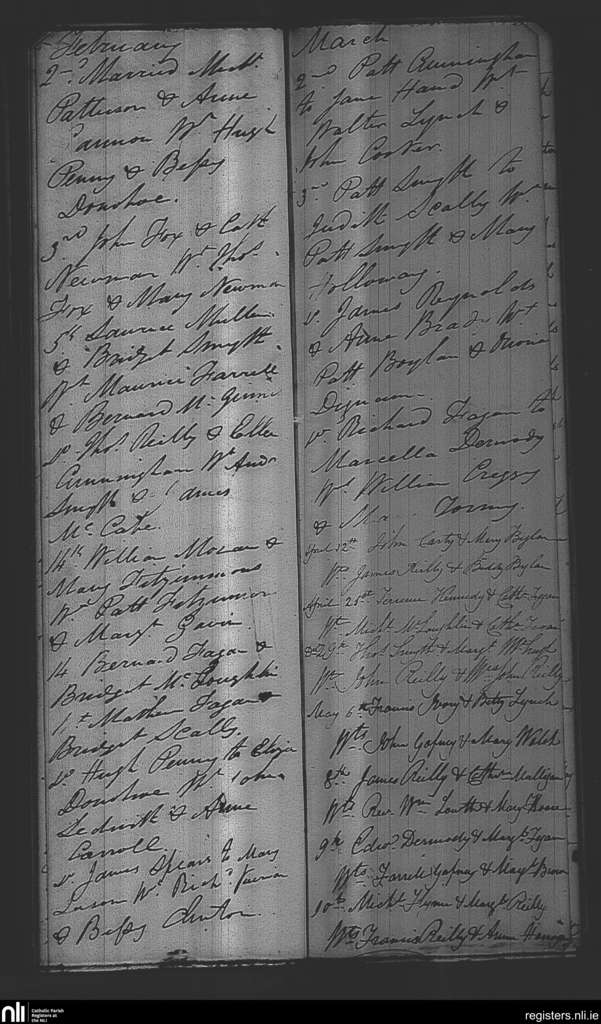 February
2nd Married Michl
Patterson & Anne
Cannon Wt Hugh
Penny & Bessy
Donohoe.
3rd John Fox & Cath
Newman Wt Thos
Fox & Mary Newman
5th Laurence Mullen
& Bridget Smyth
Wt Maurice Farrell
& Bernard Mc
Do Thos Reilly & Ellen
Cunningham Wt Andw
Smyth & James
Mc Cabe.
14th William Moran &
Mary Fitzimmons
Wt Patt Fitzimon
& Margt Gavin.
14 Bernard Fagan &
Bridget Mc Loughlin
Mathew Fagan &
Bridget Scally
Do Hugh Penny to Eliza
Donohoe Wt John
Ledwith & Anne
Carroll.
Do James Spears to Mary
Wt Richd
& Bessy Clinton.
March
2nd Patt Cunningham
to Jane Hand Wt
Walter Lynch &
John Cooker.
3rd Patt Smyth to
Judith Scally Wt
Patt Smyth & Mary
Holloway.
Do James Reynolds
& Anne Brady Wt
Patt Boylan &
Dignam.
Do Richard Fagan to
Marcella Dermody
Wt William
&
April 12th John Carty & Mary Bylan
Wts James Reilly & Biddy Bylan
April 25th Terence Kennedy & Cath Fagan
Wts Michl McLoughlin & Cathe Fagan
Do 29th Thos Smyth & Margt
Wts John Reilly & Mrs John Reilly
May 6th Francis & Betty Lynch
Wts John Gafney & Mary Walsh
8th James Reilly & Cathe Mulligan
Wts Revd Wm & Mary
9th Edwd Dermody & Margt Fagan
Wts Farrell Gafney & Margt Brown
10th Michl Flynn & Margt Reilly
Wts Francis Reilly & Anne
nli
Catholic Parish
Registers at
the NLI
registers.nli.ie